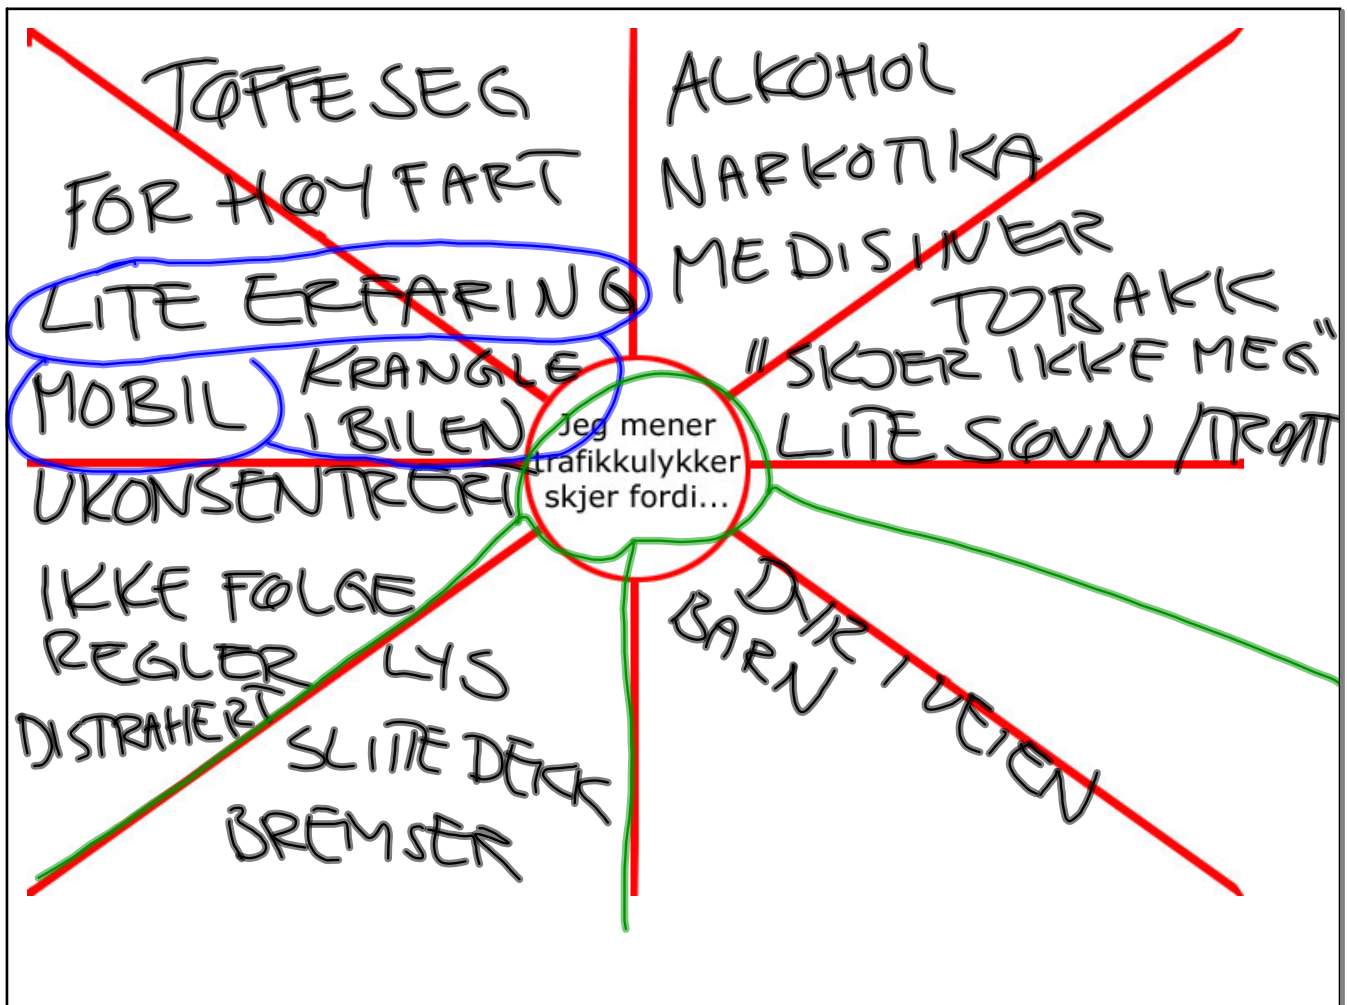 TØFFE SEG
FOR HØY FART
LITE ERFARING
MOBIL
KRANGLE
I BILEN
UKONSENTRERT
IKKE FØLGE
REGLER
DISTRAHERT
LYS
SLITTE DEKK
BREMSER
ALKOHOL
NARKOTIKA
MEDISINER
TOBAKK
"SKJER IKKE MEG"
LITE SØVN / TRØTT
Jeg mener
trafikkulykker
skjer fordi...
DYR I VEIEN
BARN